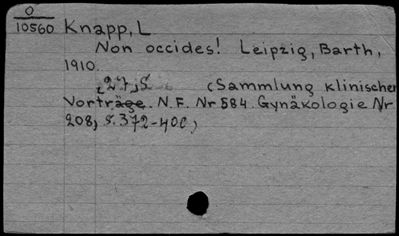 O
10560 Knapp, L
Non occides! Leipzig, Barth,
1910.
27, S (Sammlung klinischer
Vorträge. N.F. Nr 584. Gynäkologie Nr
208, S. 372-400,